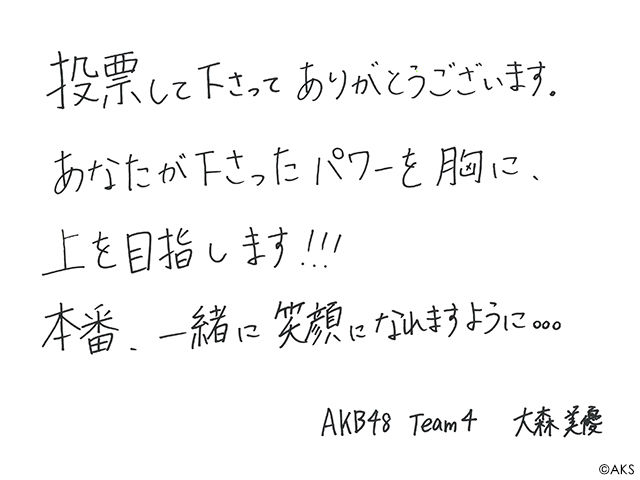 投票して下さってありがとうございます。
あなたが下さったパワーを胸に、
上を目指します!!!
本番、一緒に笑顔になれますように...
AKB48 Team4 大森美優
©AKS